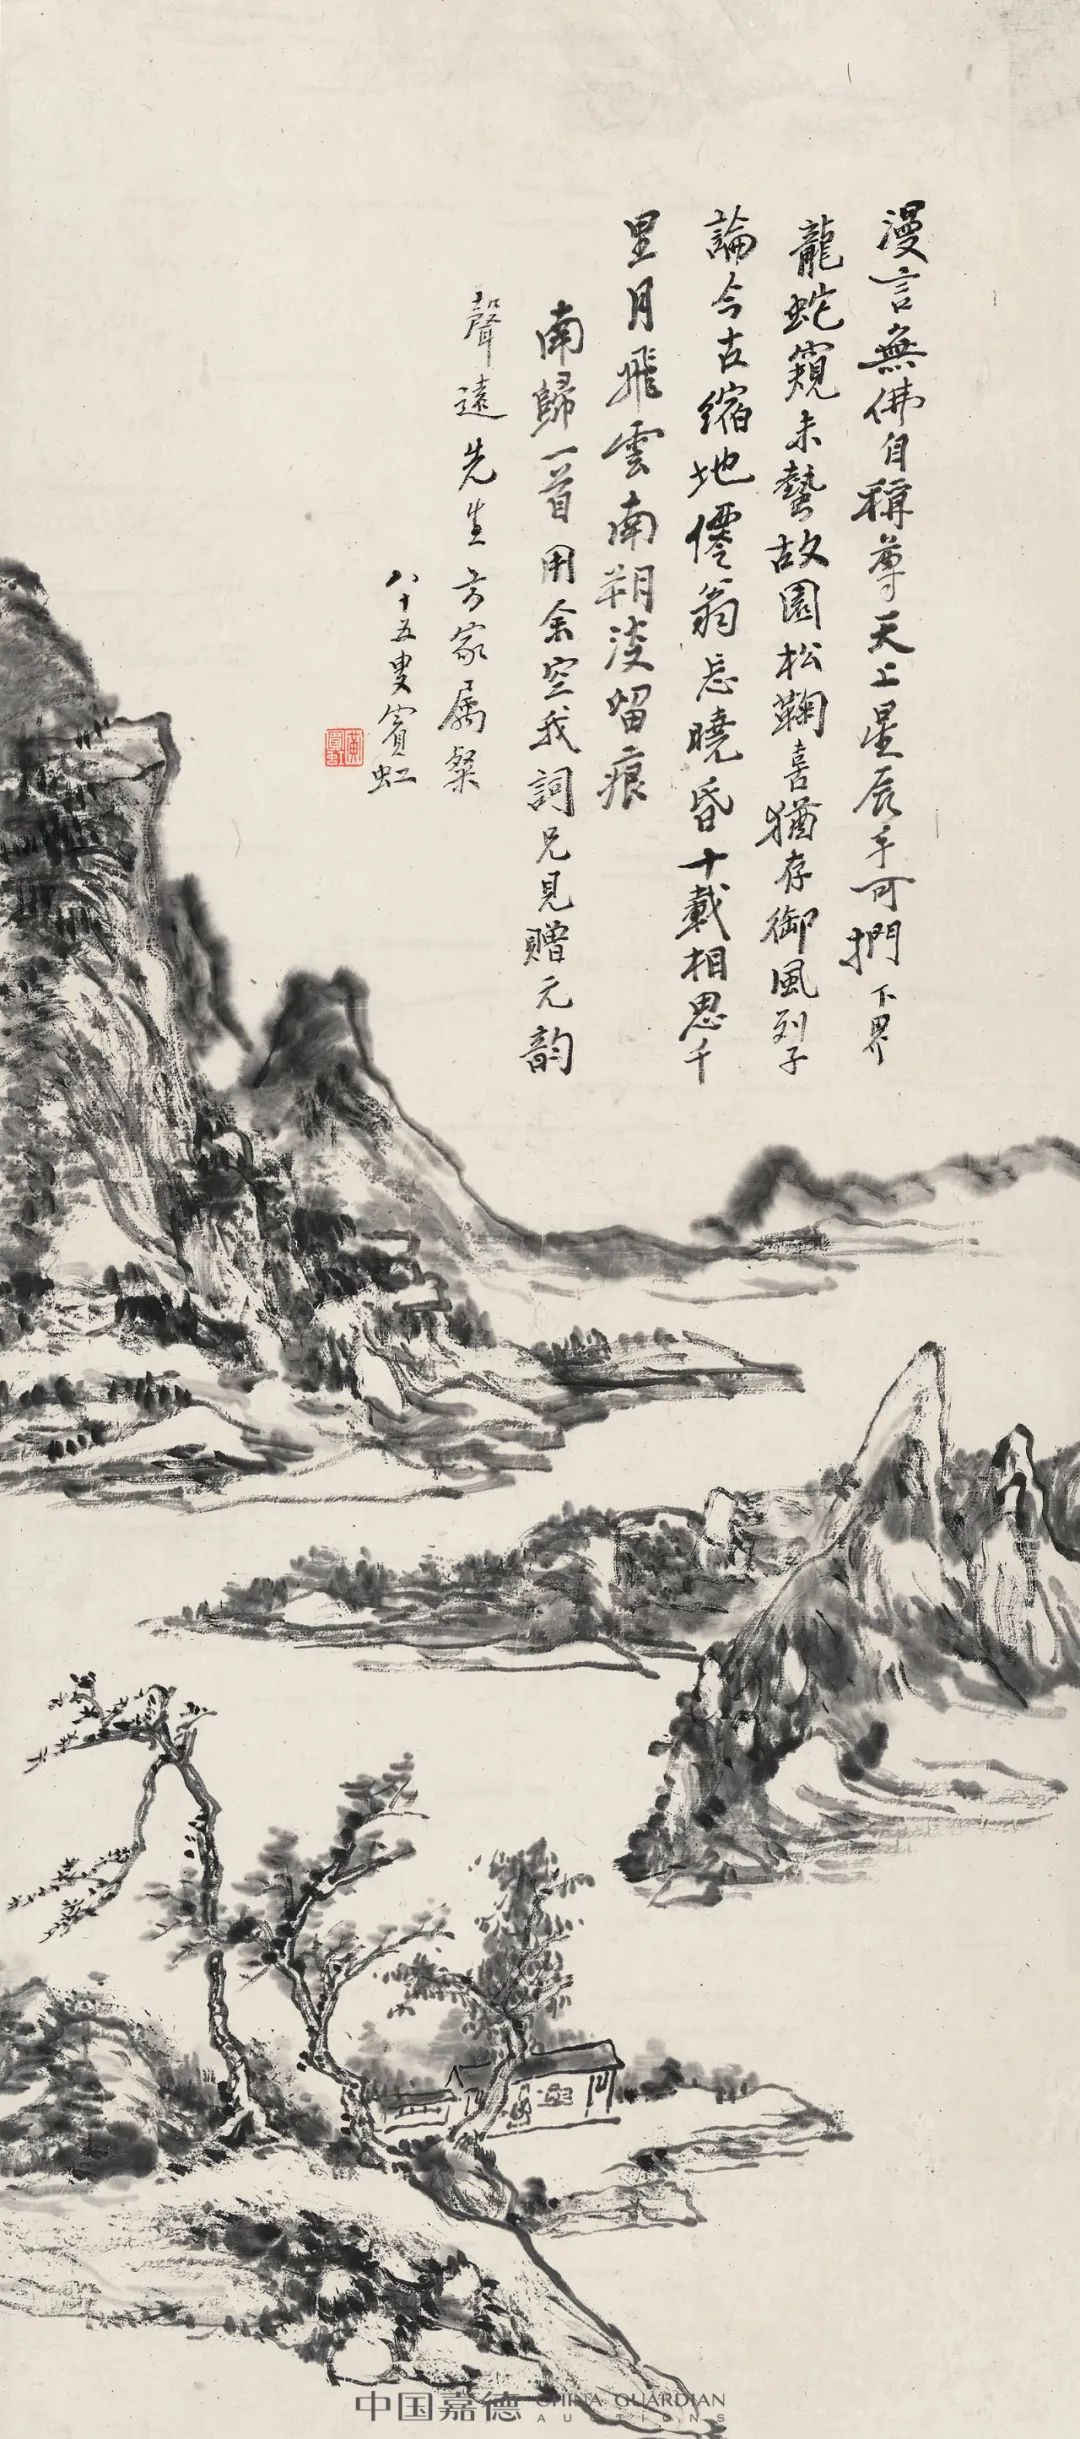 漫言無佛自稱尊天上星辰手可捫下界
龍蛇窺未蟄故園松鞠喜猶存御風列子
論今古縮地僊翁忘曉昏十載相思千
里月飛雲南朔淡留痕
南歸一首用余空我詞兄見贈元韵
聲遠先生方家属粲
八十五叟賓虹
黄賓虹
中国嘉德 CHINA GUARDIAN
AUCTIONS